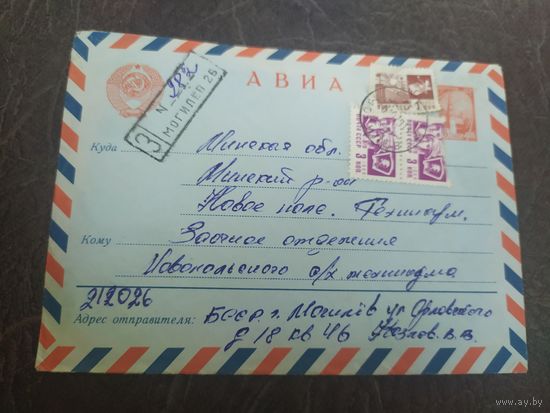 АВИА
З
N 982
МОГИЛЕВ 26
ПОЧТА СССР
3 коп
3 коп
Куда
Минская обл.
Минский р-он
Новое поле. Техникум.
Кому
Заочное отделения
Новопольского с/х техникума
212026
Адрес отправителя:
БССР. г. Могилёв ул Орловского
д 18 кв 46 Козлов. В.В.
www.ay.by